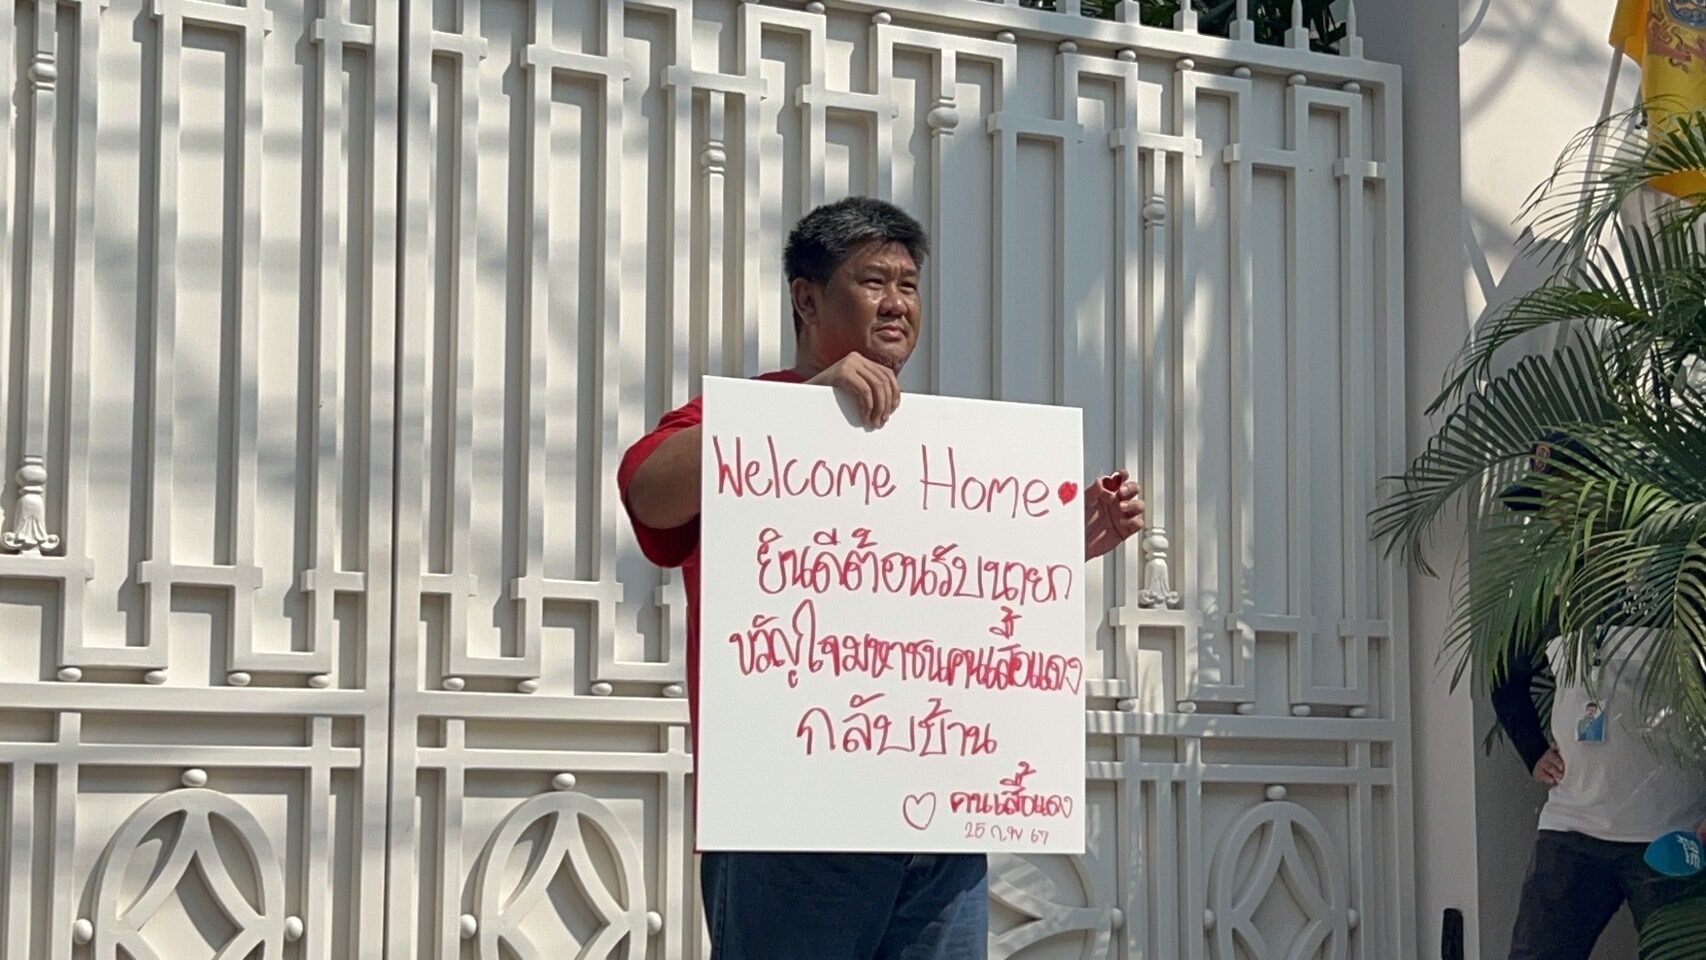 Welcome Home
ยินดีต้อนรับนายก
ขวัญใจมหาชนคนเสื้อแดง
กลับบ้าน
คนเสื้อแดง
25 ก.พ 67
NEWS